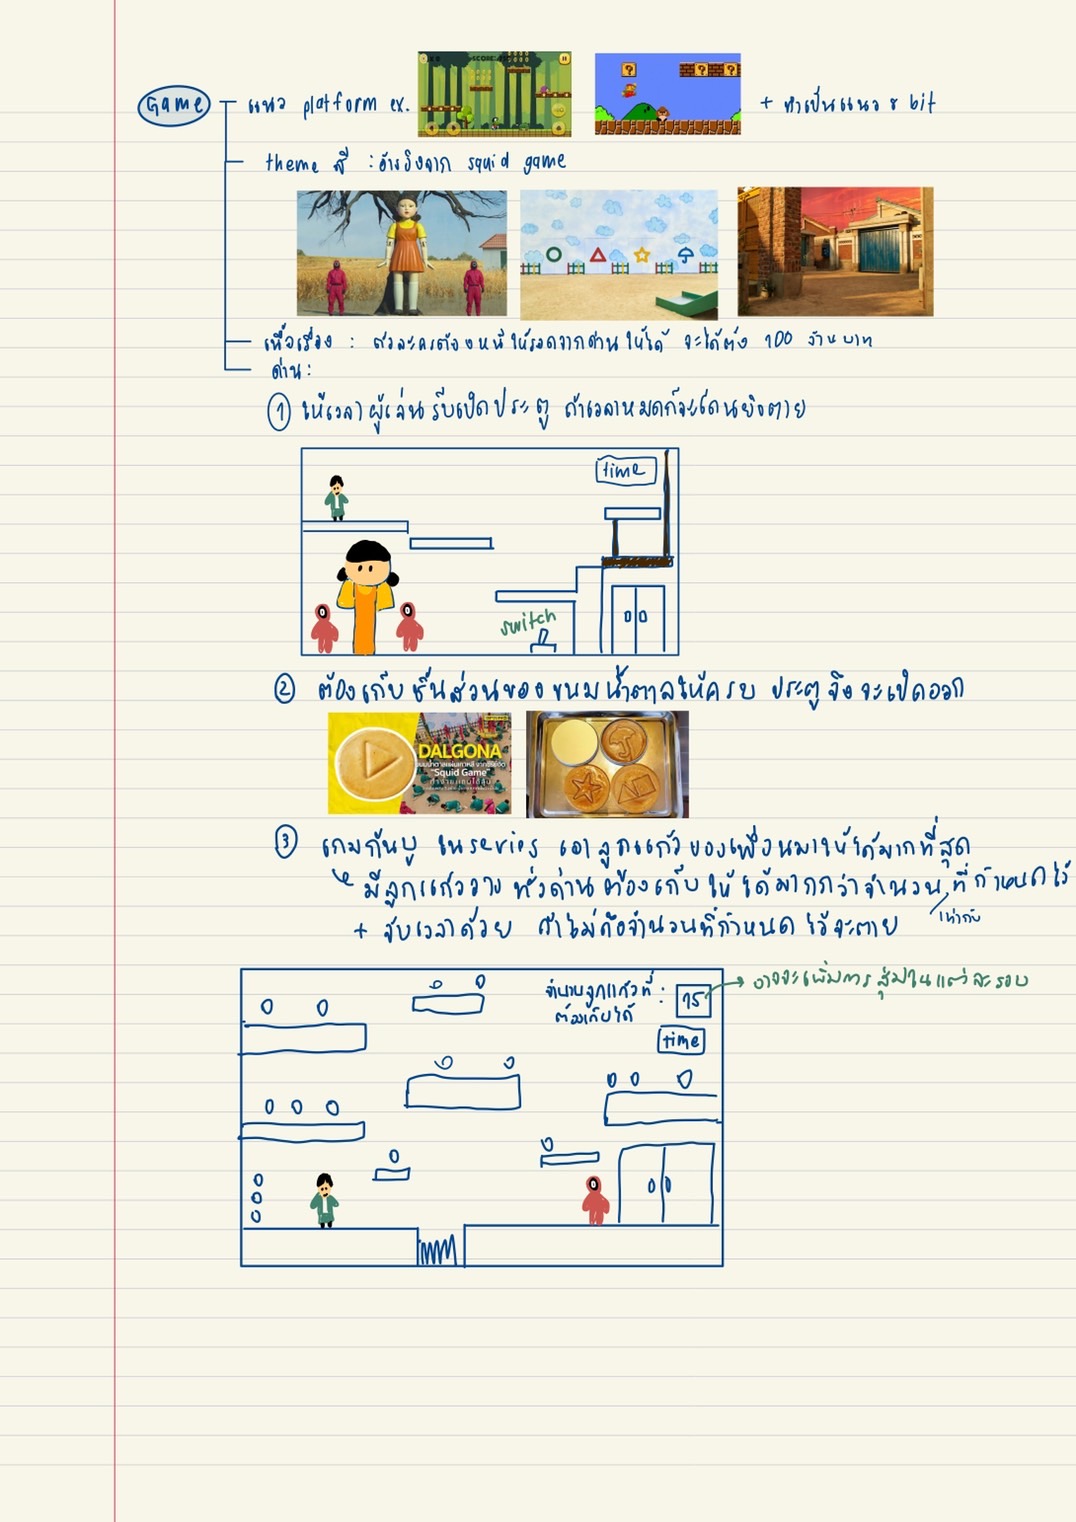 Game
แนว platform ex.
SCORE:
+ ทำเป็นแนว 8 bit
theme สี : อ้างอิงจาก squid game
เนื้อเรื่อง : ตัวละครต้องหนีให้รอดจากด่านให้ได้ จะได้ตัง 100 ล้านบาท
ด่าน :
① ให้เวลาผู้เล่นรีบเปิดประตู ถ้าเวลาหมดก็จะโดนยิงตาย
time
switch
② ต้องเก็บชิ้นส่วนของขนมน้ำตาลให้ครบ ประตูจึงจะเปิดออก
DALGONA
"Squid Game"
③ เกมกันบู ในseries เอาลูกแก้วของเพื่อนมาให้ได้มากที่สุด
มีลูกแก้ววางทั่วด่าน ต้องเก็บให้ได้มากกว่าจำนวนที่กำหนดไว้
เท่ากับ
+ จับเวลาด้วย ถ้าไม่ถึงจำนวนที่กำหนดไว้จะตาย
จำนวนลูกแก้วที่ : 15
ต้องเก็บได้
อาจจะเพิ่มการสุ่มในแต่ละรอบ
time